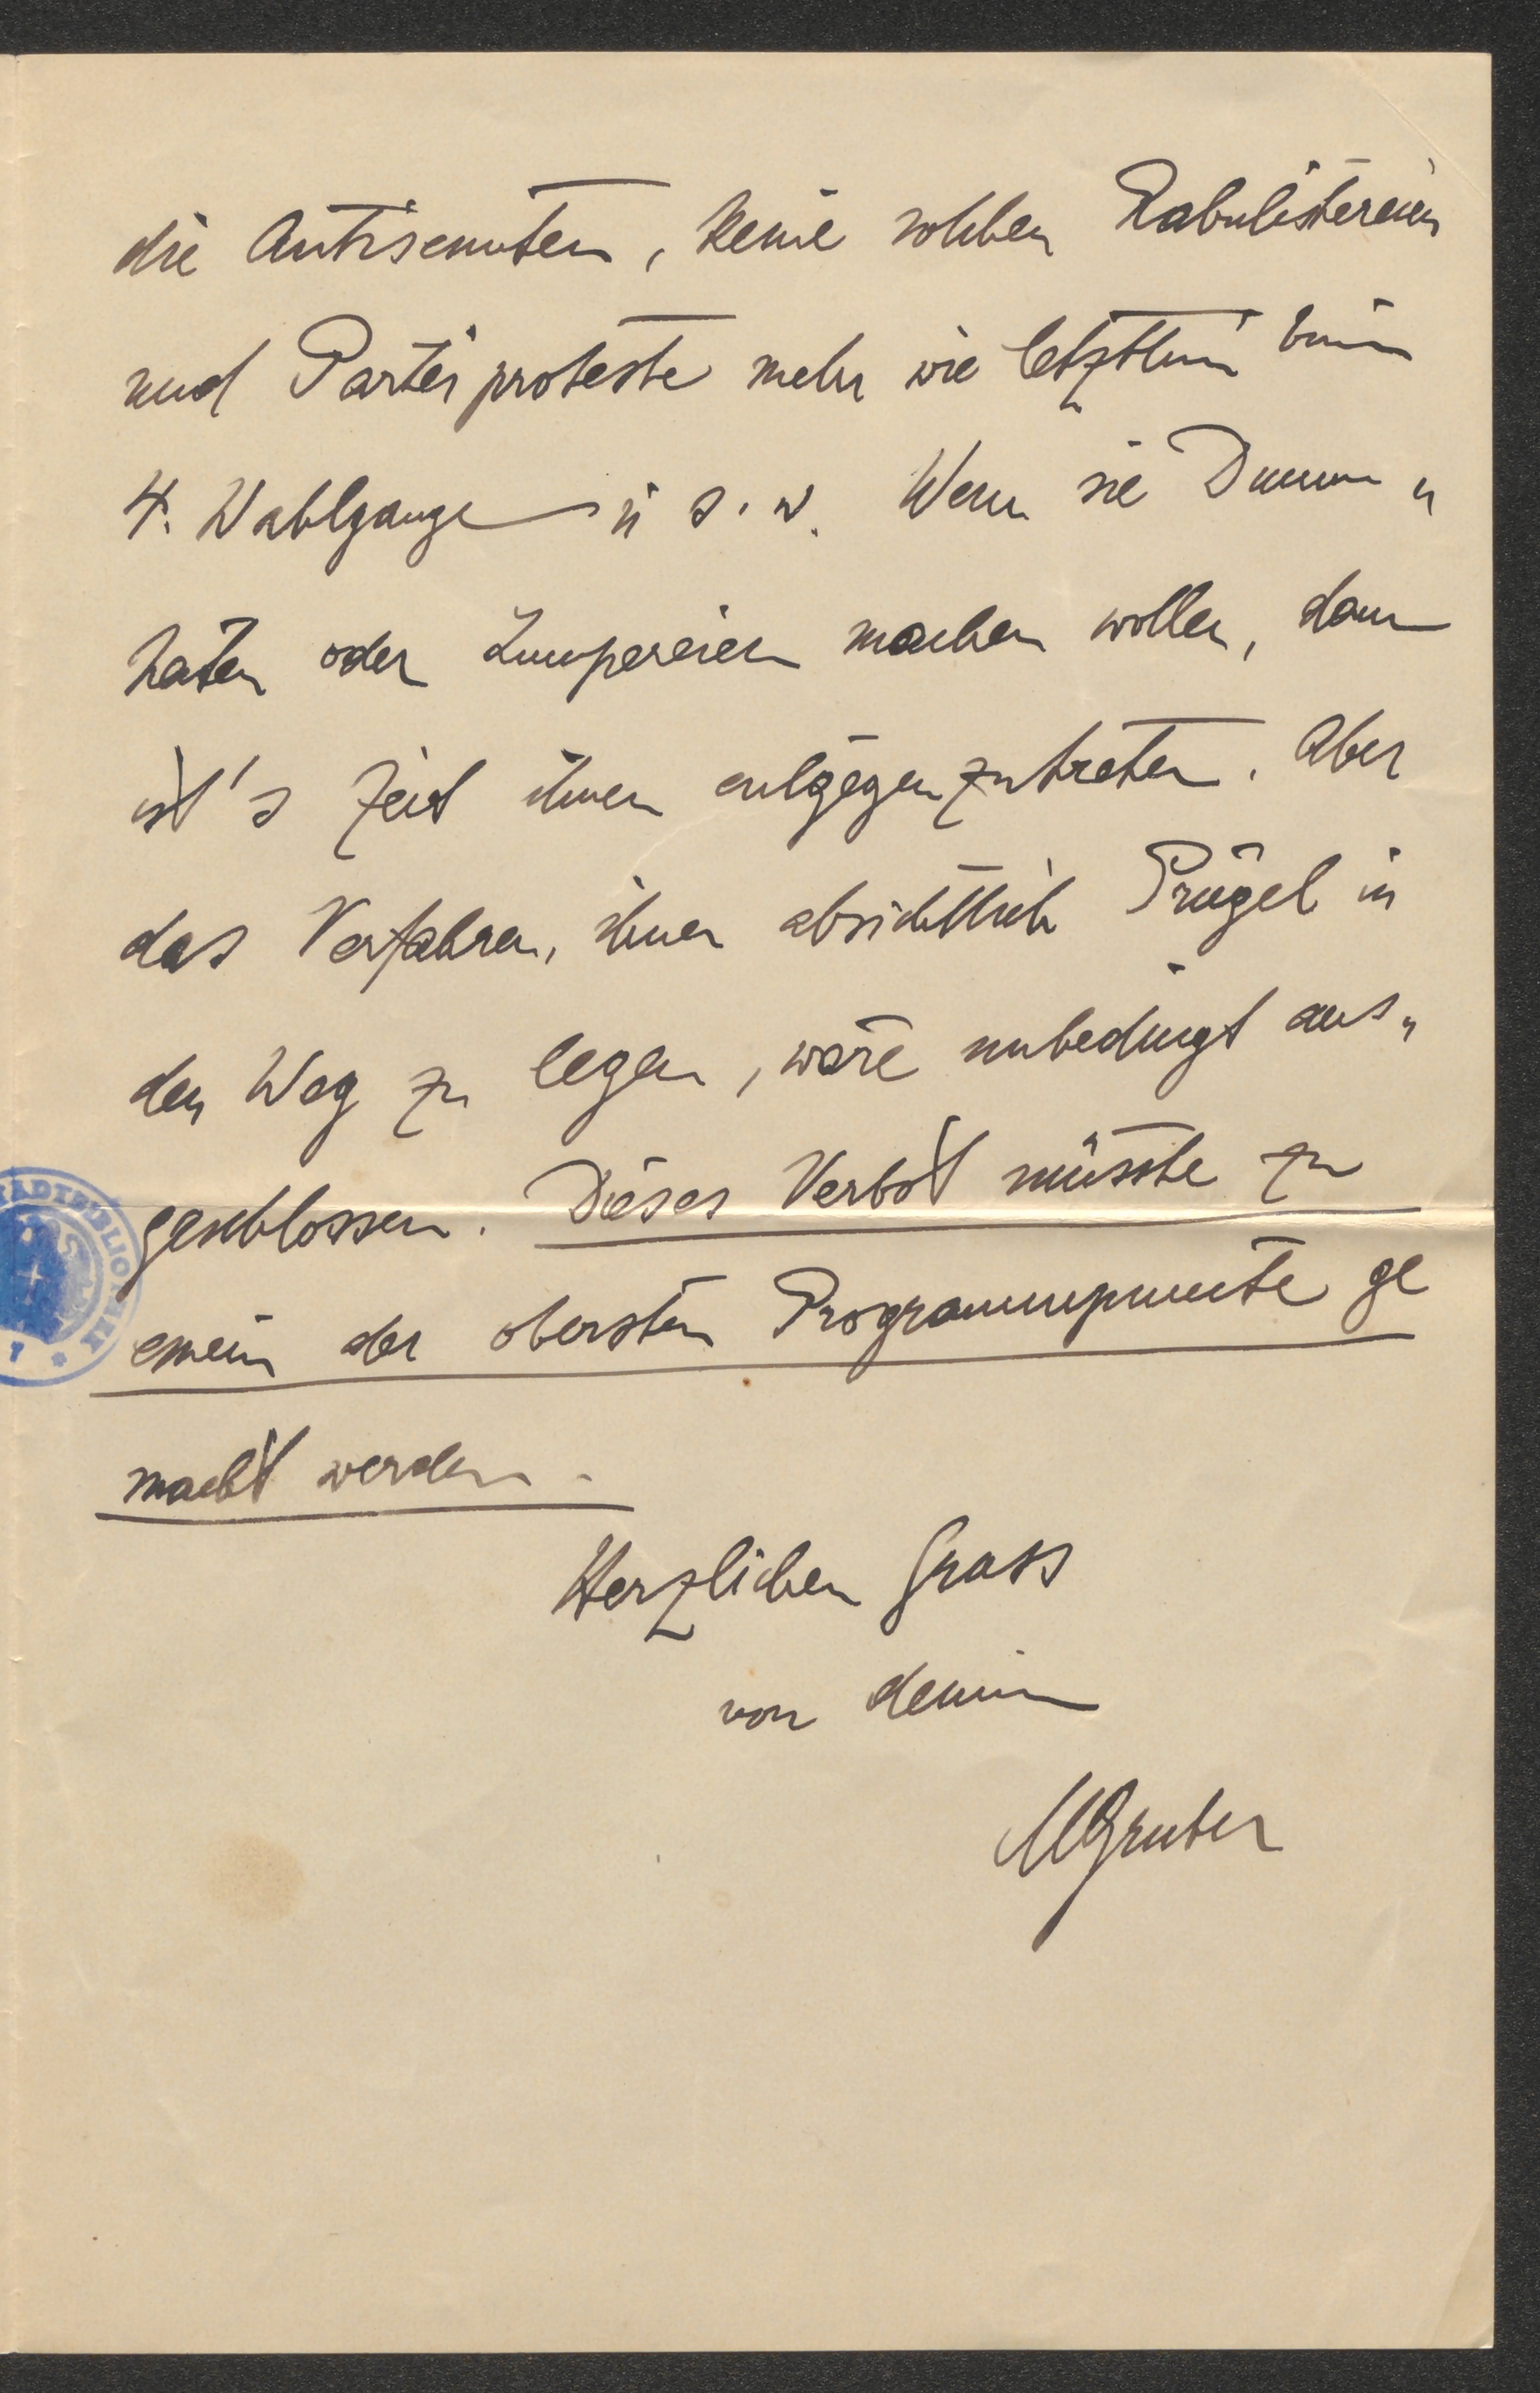 die Antisemiten, keine solchen Rabulistereien
und Parteiproteste mehr wie letzthin beim
4. Wahlgange u s. w. Wenn sie Dumm„
heiten oder Lumpereien machen wollen, dann
ist's Zeit ihnen entgegenzutreten. Aber
das Verfahren, ihnen absichtlich Prügel in
den Weg zu legen, wäre unbedingt aus„
geschlossen. Dieses Verbot müsste zu
einem der obersten Programmpunkte ge
macht werden.
Herzlichen Gruss
von deinem
MGruber
STADTBIBLIOTHEK